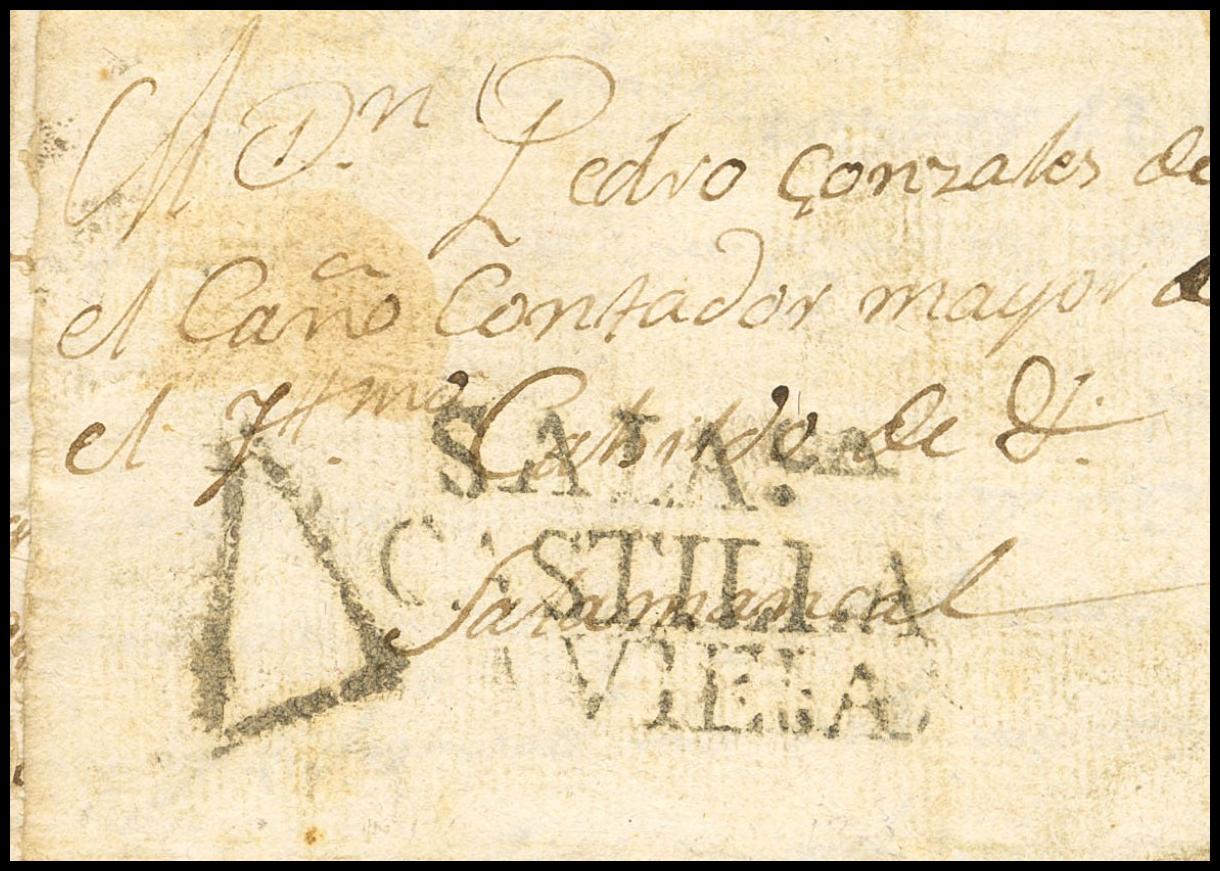 A Dn. Pedro Gonzales de
el Caño Contador mayor de
el Yllmo. Cabildo de
SALA.CA
CASTILLA
Salamanca
VIEJA